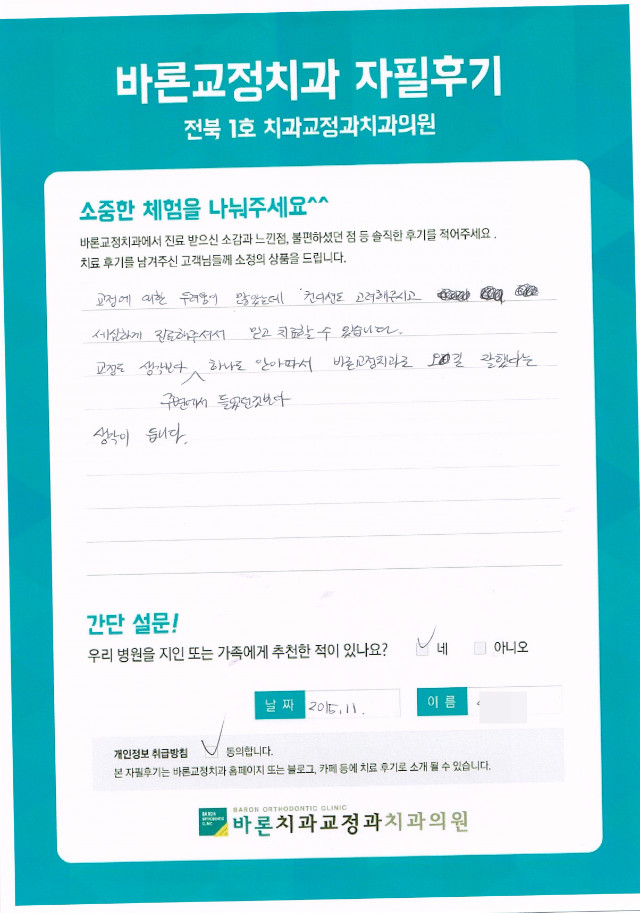 바론교정치과 자필후기
전북 1호 치과교정과치과의원
소중한 체험을 나눠주세요^^
바론교정치과에서 진료 받으신 소감과 느낀점, 불편하셨던 점 등 솔직한 후기를 적어주세요 .
치료 후기를 남겨주신 고객님들께 소정의 상품을 드립니다.
교정에 대한 두려움이 많았는데 고려해주시고
세심하게 진료해주셔서 믿고 치료할 수 있습니다.
교정도 생각보다 하나도 안아파서 바론교정치과로 오길 잘했다는
주변에서 들었던것보다
생각이 듭니다.
간단 설문!
우리 병원을 지인 또는 가족에게 추천한 적이 있나요? 네 아니오
날 짜 2015.11. 이 름
개인정보 취급방침 동의합니다.
본 자필후기는 바론교정치과 홈페이지 또는 블로그, 카페 등에 치료 후기로 소개 될 수 있습니다.
BARON ORTHODONTIC CLINIC
바론치과교정과치과의원